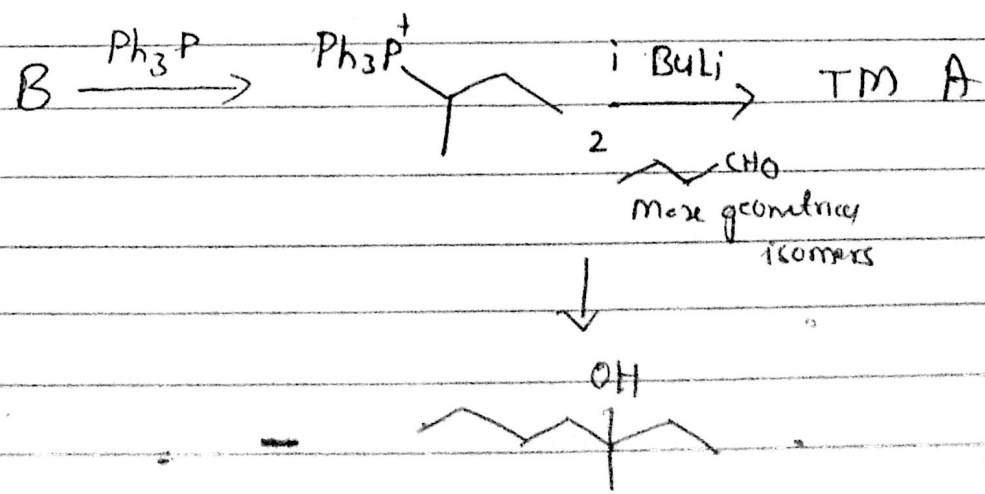 Ph₃P
B
Ph₃P⁺
i BuLi
TM A
2
CHO
More geometrical
isomers
OH